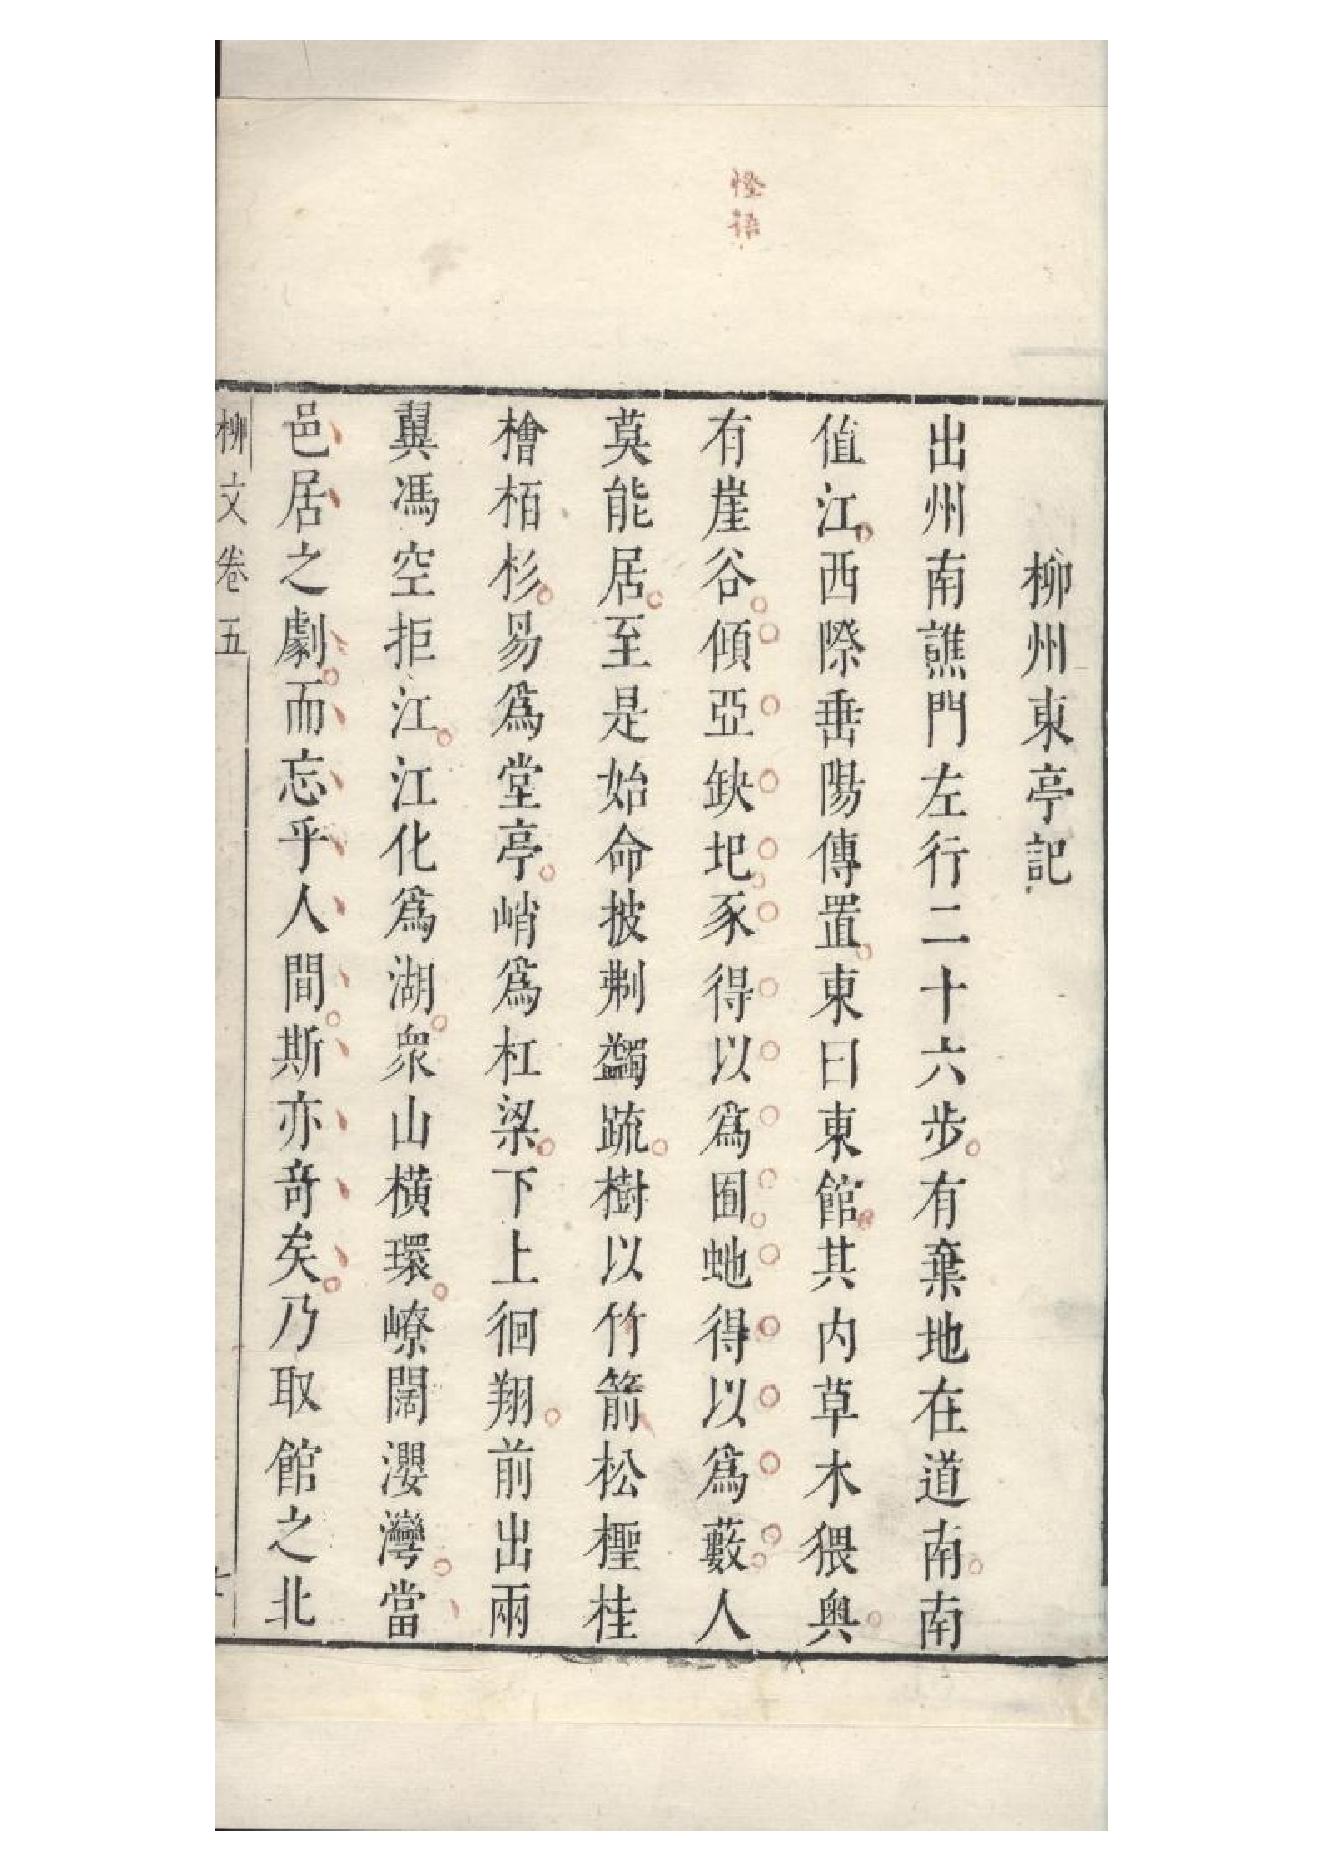 柳州東亭記
出州南譙門左行二十六步有棄地在道南南
值江西際垂陽傳置東曰東館其内草木猥奥
有崖谷傾亞缺圯豕得以爲囿虵得以爲藪人
莫能居至是始命披刜蠲疏樹以竹箭松檉桂
檜栢杉易爲堂亭峭爲杠梁下上徊翔前出兩
翼馮空拒江江化爲湖衆山橫環嶚闊瀴灣當
邑居之劇而忘乎人間斯亦竒矣乃取館之北
柳文卷五